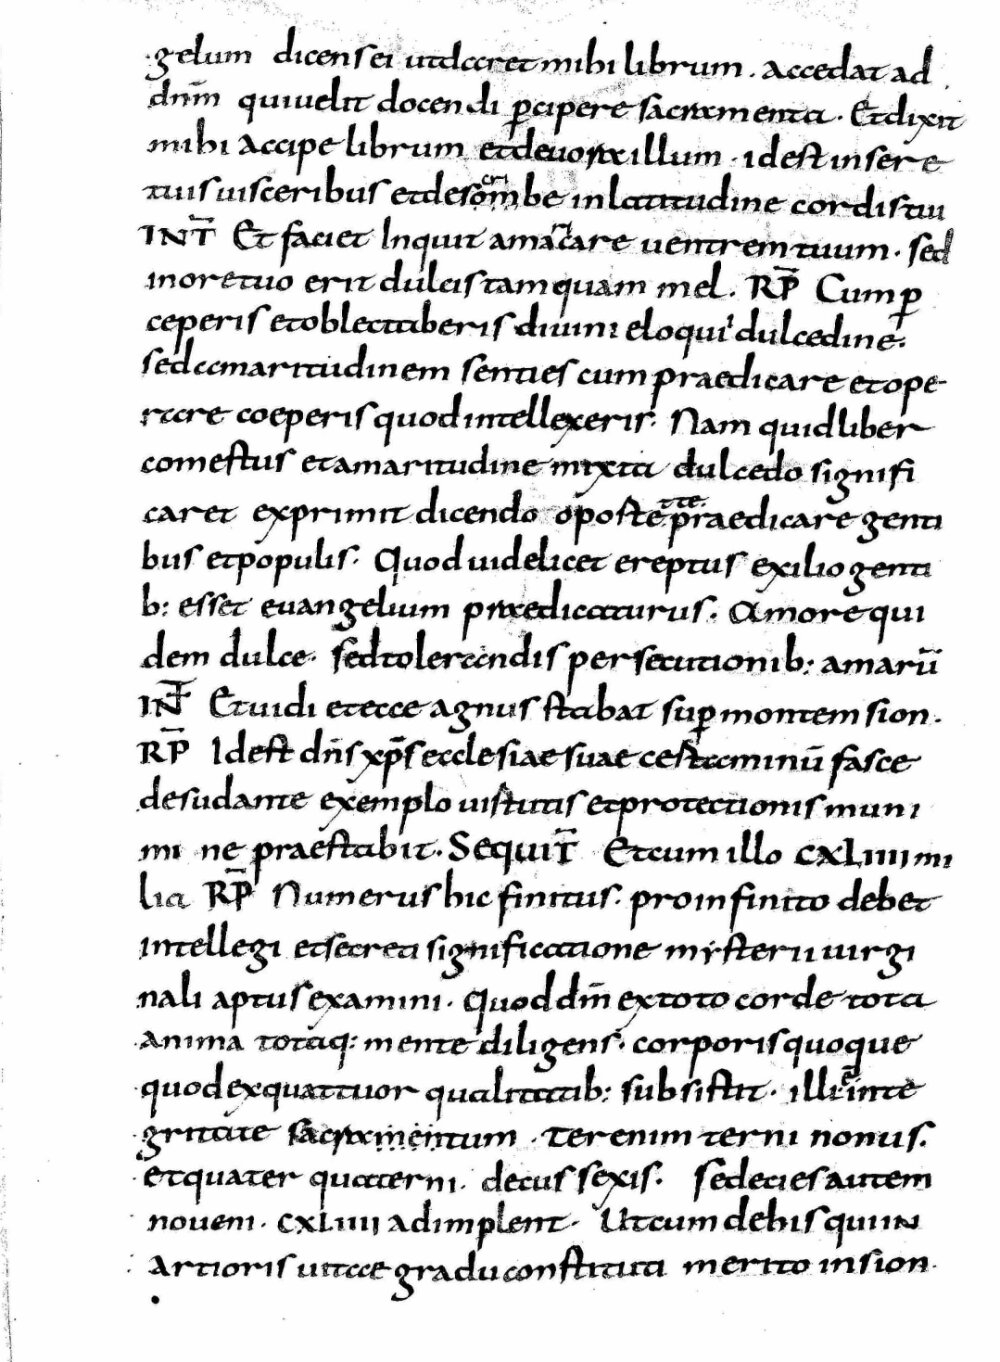 gelum dicens ei utdaret mihi librum. Accedat ad
dnm̄ quiuelit docendi p̱cipere sacramenta. Etdixit
mihi Accipe librum etdeuora illum. idest insere
tuis uisceribus etdescri om̅be inlatitudine cordis tui
INT̄ Et faciet Inquit amaricare uentrem tuum. sed
inoretuo erit dulcis tamquam mel. RP̄ Cum p̱
ceperis etoblectaberis diuini eloqui dulcedine.
sed amaritudinem senties cum praedicare etope-
rare coeperis quod intellexeris. Nam quid liber
comestus etamaritudine mixta dulcedo signifi
caret exprimit dicendo oportet te praedicare genti
bus etpopulis. Quod uidelicet ereptus exilio genti
b: esset euangelium praedicaturus. Amore qui
dem dulce. sed tolerandis persecutionib: amarū
INT̄ Et uidi etecce agnus stabat sup̱ montem sion.
RP̄ Idest dn̄s xp̄s ecclesiae suae cestaminū fasce
desudante exemplo uistutis etprotectionis muni
mi ne praestabit. SequiT̄ Etcum illo CXLIIII mi
lia RP̄ Numerus hic finitus. proinfinito debet
intellegi etsecreta significatione mysterii uirgi
nali aptus examini. Quod dm̄ extoto corde tota
anima totaq: mente diligens. corporis quoque
quod exquattuor qualitatib: subsistit. illi a inte
gritate sacramentum. Ter enim terni nonus.
etquater quaterni. decus sexis. sedecies autem
noueni. CXLIIII adimplent. Utcum dehis quiin
artioris uitae gradu constituti merito insion.